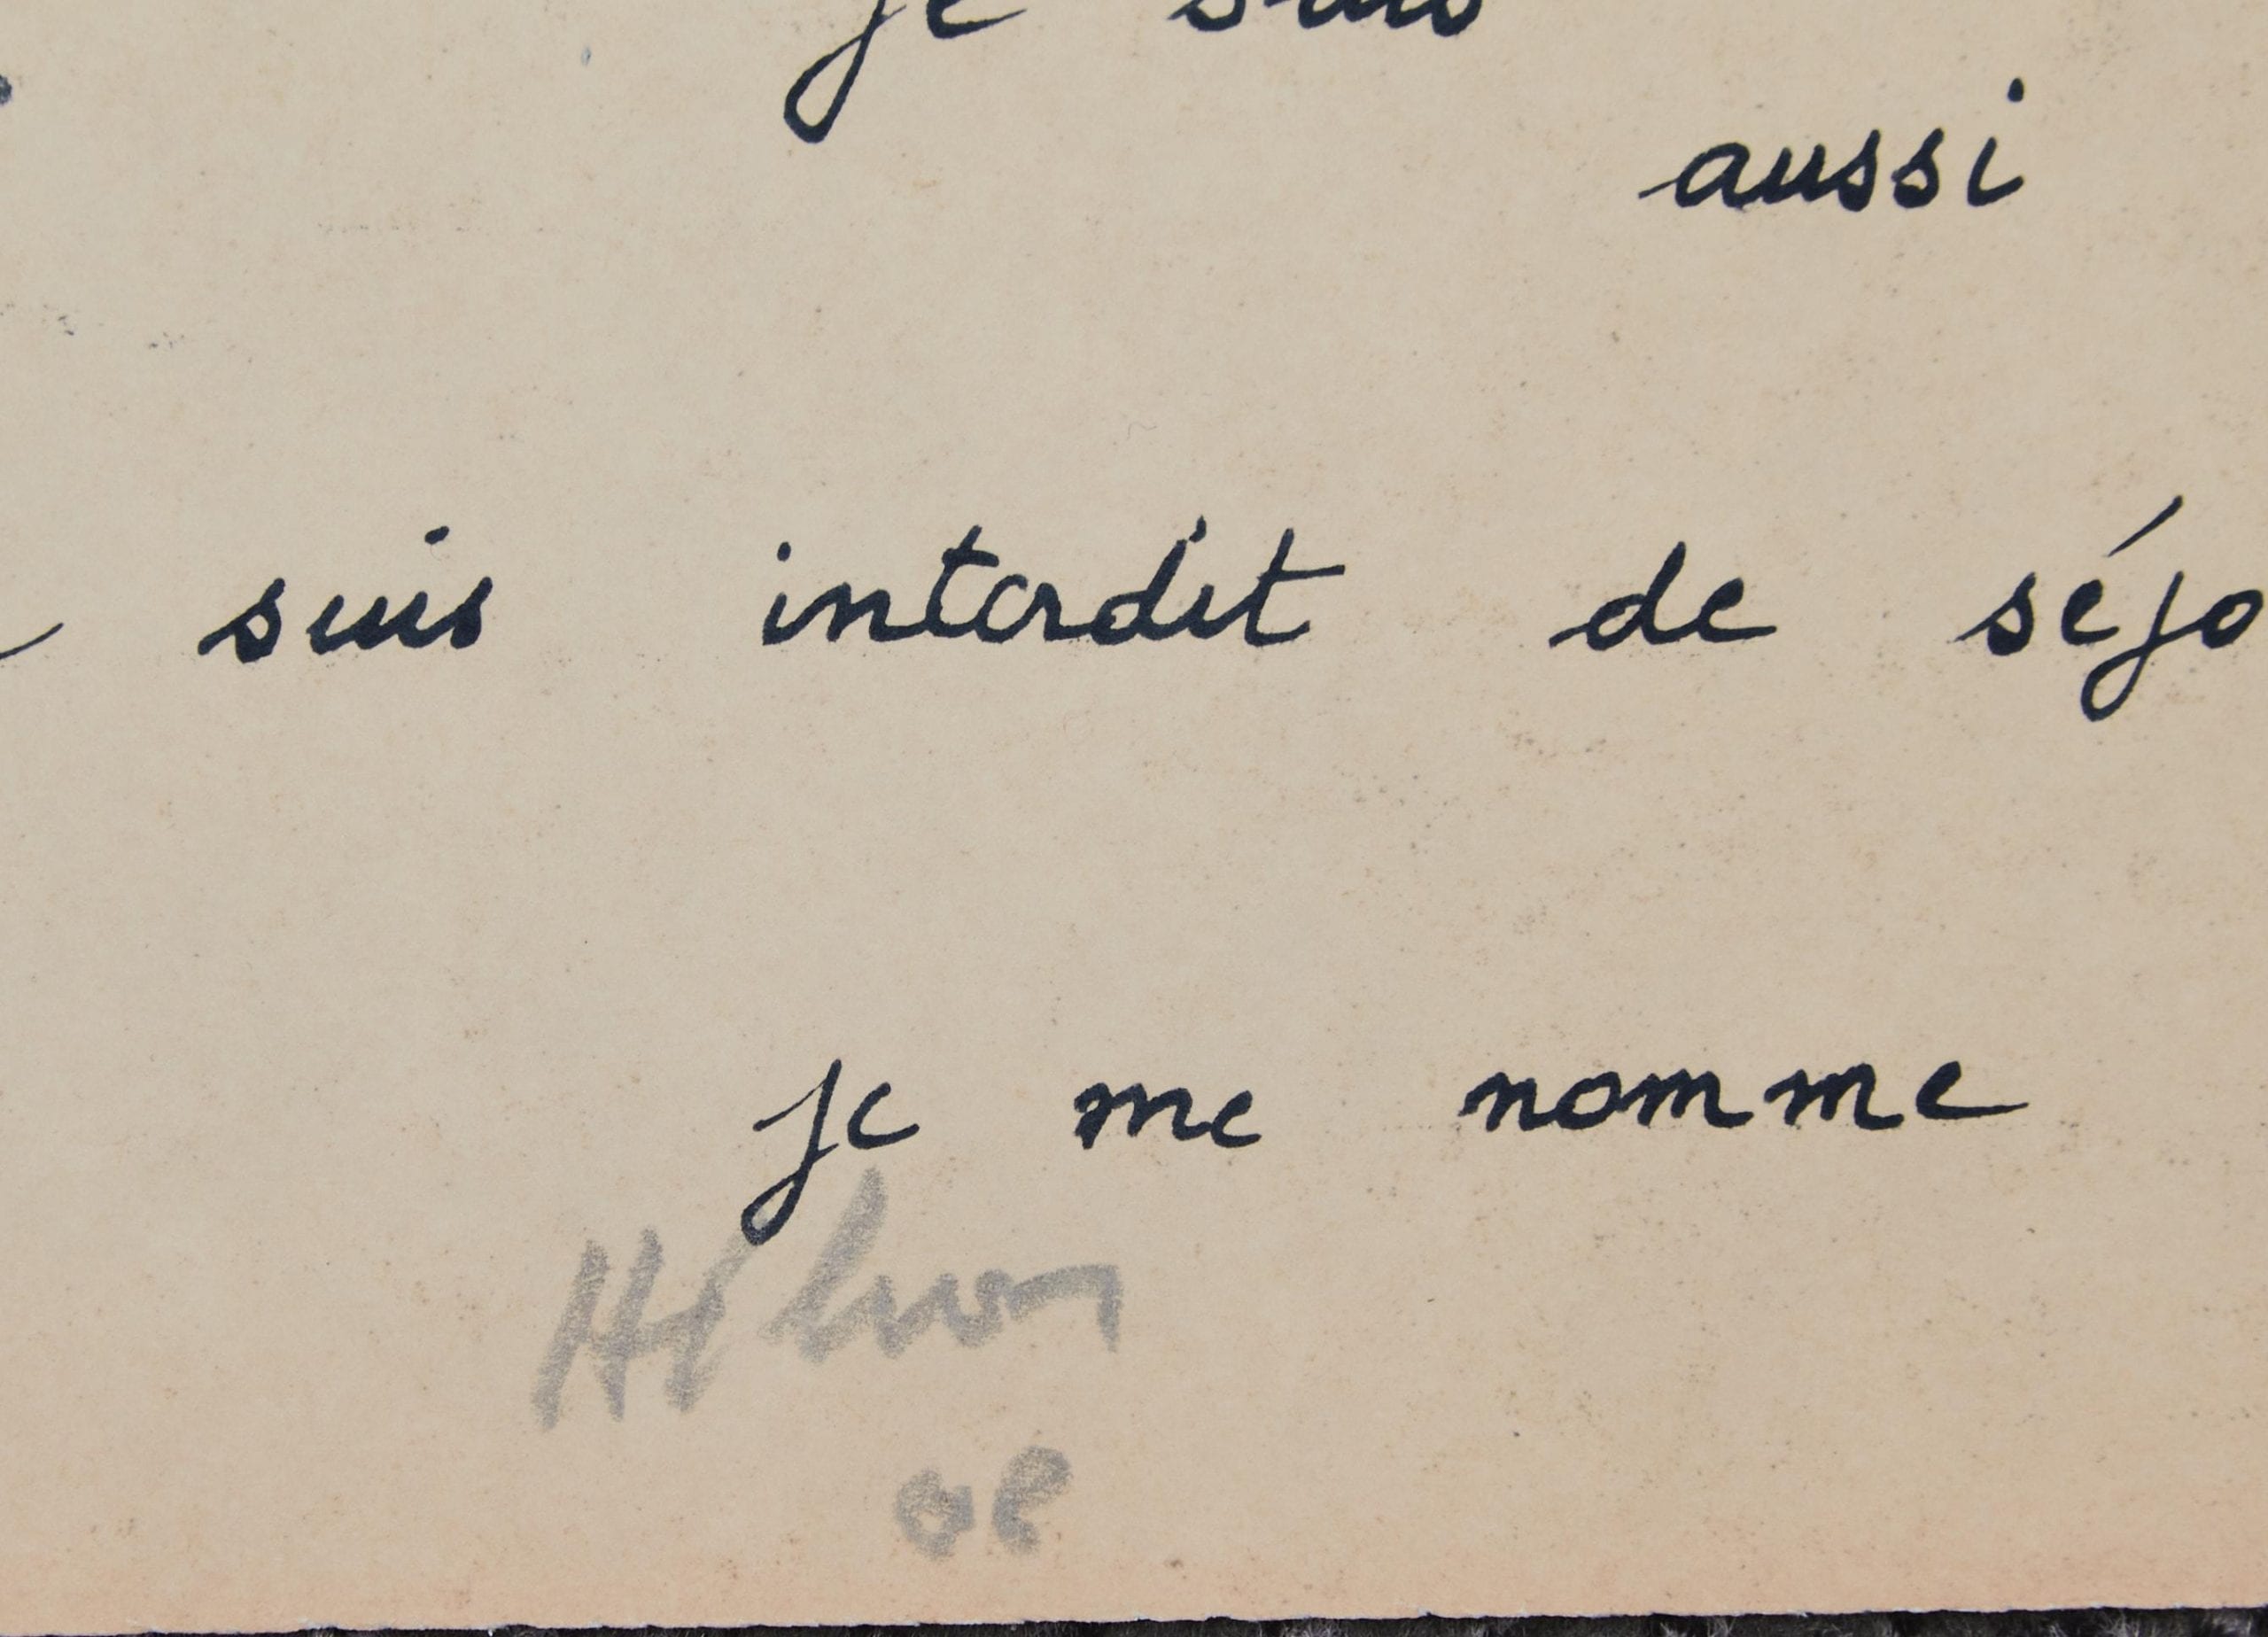 je suis
aussi
suis interdit de séjo
je me nomme